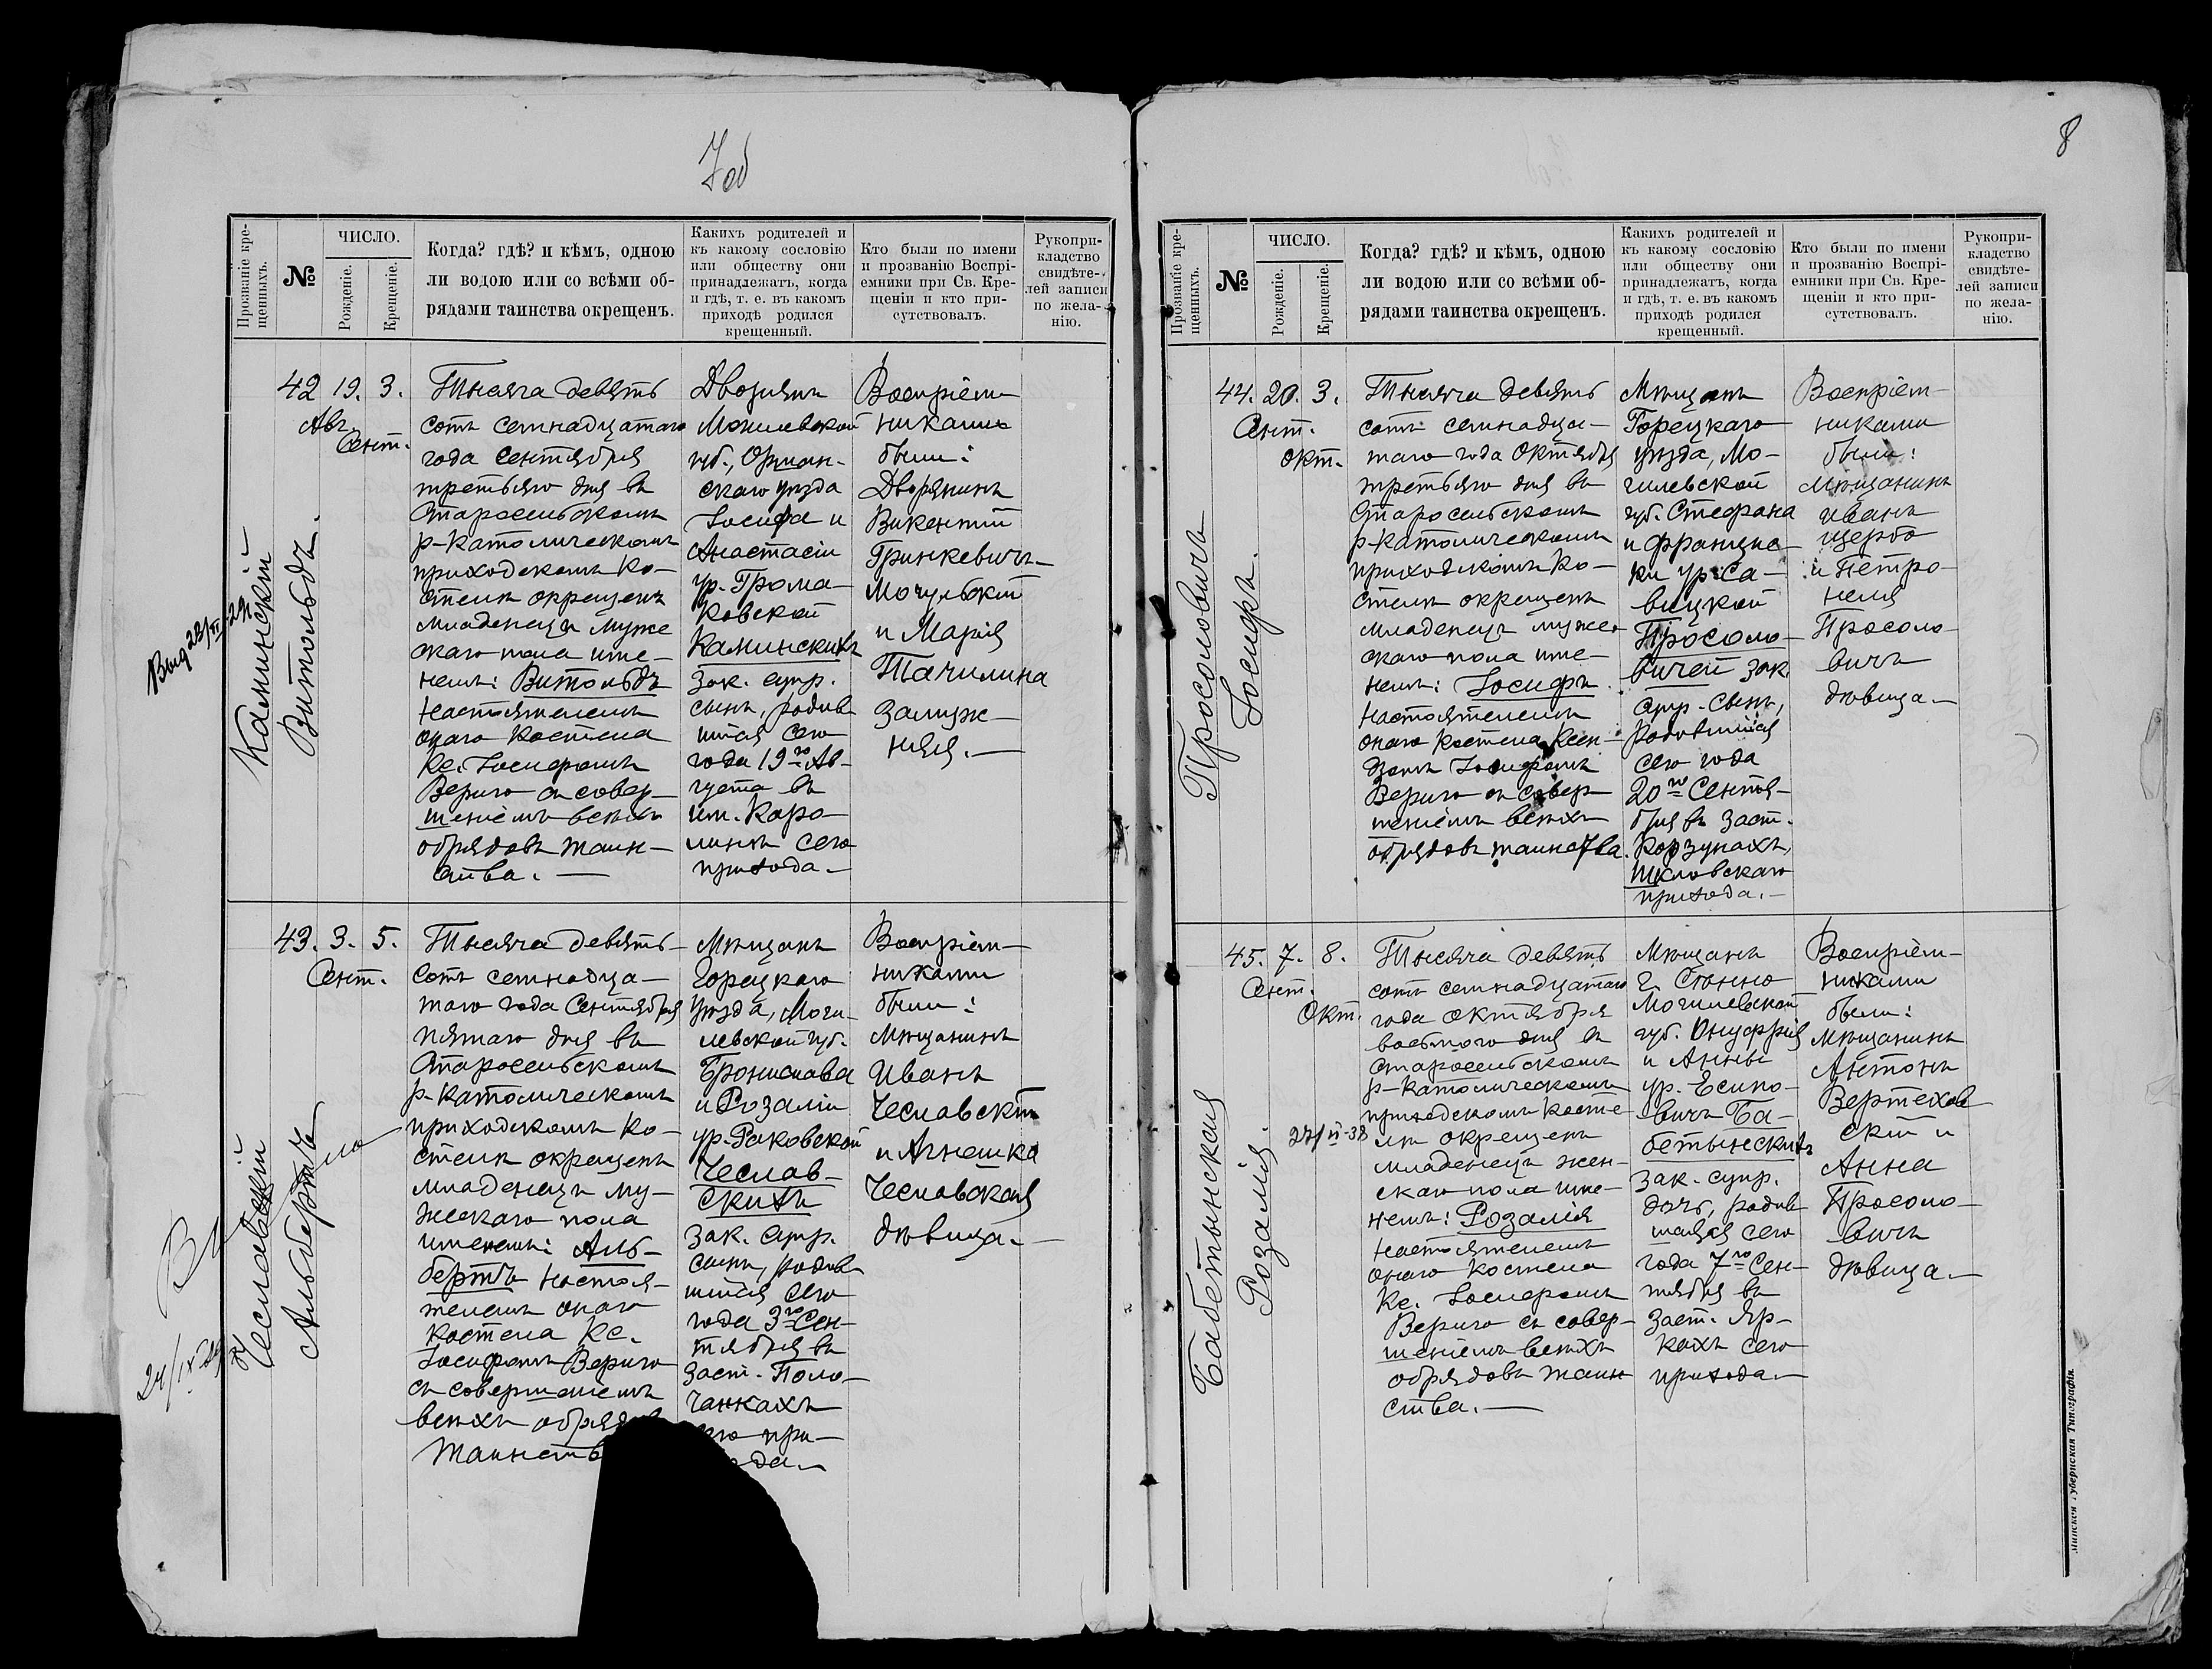 7об
Прозваніе кре-
щенныхъ.
№
ЧИСЛО.
Рожденіе.
Крещеніе.
Когда? гдѣ? и кѣмъ, одною
ли водою или со всѣми об-
рядами таинства окрещенъ.
Какихъ родителей и
къ какому сословію
или обществу они
принадлежатъ, когда
и гдѣ, т. е. въ какомъ
приходѣ родился
крещенный.
Кто были по имени
и прозванію Воспрі-
емники при Св. Кре-
щеніи и кто при-
сутствовалъ.
Рукопри-
кладство
свидѣте-
лей записи
по жела-
нію.
Каминскій
Витольдъ.
42 19. 3.
Авг.
Сент.
Тысяча девять
сотъ семнадцатаго
года Сентября
третьяго дня въ
Старосельскомъ
р-католическомъ
приходскомъ ко-
стелѣ окрещенъ
младенецъ муже
скаго пола име-
немъ: Витольдъ
настоятелемъ
онаго костела
Кс. Іосифомъ
Вериго съ совер-
шеніемъ всѣхъ
обрядовъ таин-
ства.—
Дворянъ
Могилевской
губ., Оршан-
скаго уѣзда
Іосифа и
Анастасіи
ур. Грома-
ковской
Каминскихъ
зак. супр.
сынъ, родив
шійся сего
года 19го Ав-
густа въ
им. Каро-
линѣ сего
прихода.—
Воспріем-
никами
были:
Дворянинъ
Викентій
Гринкевичъ-
Мочульскій
и Марія
Тачилина
замуж-
няя.—
Чеславскій
Альбертъ
43. 3. 5.
Сент.
Тысяча девять-
сотъ семнадца-
таго года Сентября
пятаго дня въ
Старосельскомъ
р-католическомъ
приходскомъ ко-
стелѣ окрещенъ
младенецъ му-
жескаго пола
именемъ: Аль-
бертъ настоя-
телемъ онаго
костела Кс.
Іосифомъ Вериго
съ совершеніемъ
всѣхъ
Мѣщанъ
Горецкаго
уѣзда, Моги-
левской губ.
Бронислава
и Розаліи
ур. Раковской
Чеслав-
скихъ
зак. супр.
сынъ, родив
шійся сего
года 3го Сен-
тября въ
заст. Поло-
чанкахъ
при-
Воспріем-
никами
были:
Мѣщанинъ
Иванъ
Чеславскій
и Агнешка
Чеславская
дѣвица.—
8
Прозваніе кре-
щенныхъ.
№
ЧИСЛО.
Рожденіе.
Крещеніе.
Когда? гдѣ? и кѣмъ, одною
ли водою или со всѣми об-
рядами таинства окрещенъ.
Какихъ родителей и
къ какому сословію
или обществу они
принадлежатъ, когда
и гдѣ, т. е. въ какомъ
приходѣ родился
крещенный.
Кто были по имени
и прозванію Воспрі-
емники при Св. Кре-
щеніи и кто при-
сутствовалъ.
Рукопри-
кладство
свидѣте-
лей записи
по жела-
нію.
Просоловичъ
Іосифъ.
44. 20. 3.
Сент.
окт.
Тысяча девять
сотъ семнадца-
таго года Октября
третьяго дня въ
Старосельскомъ
р-католическомъ
приходскомъ ко-
стелѣ окрещенъ
младенецъ муже-
скаго пола име-
немъ: Іосифъ
настоятелемъ
онаго костела Ксен-
дзомъ Іосифомъ
Вериго съ совер-
шеніемъ всѣхъ
обрядовъ таинства.
Мѣщанъ
Горецкаго
уѣзда, Мо-
гилевской
губ. Стефана
и Францис-
ки ур. Са-
вицкой
Просоло-
вичей зак.
супр. сынъ,
родившійся
сего года
20го Сентя-
бря въ заст.
Корзунахъ,
Шкловскаго
прихода.—
Воспріем-
никами
были:
Мѣщанинъ
Иванъ
Щербо
и Петро-
неля
Просоло-
вичъ
дѣвица.—
Бабетынская
Розалія.
45. 7. 8.
Сент.
Окт.
Тысяча девять
сотъ семнадцатаго
года Октября
восьмого дня въ
Старосельскомъ
р-католическомъ
приходскомъ косте-
лѣ окрещенъ
младенецъ жен-
скаго пола име-
немъ: Розалія
настоятелемъ
онаго костела
Кс. Іосифомъ
Вериго съ совер-
шеніемъ всѣхъ
обрядовъ таин
ства.—
Мѣщанъ
г. Сѣнно
Могилевской
губ. Онуфрія
и Анны
ур. Есипо-
вичъ Ба-
бетынскихъ
зак. супр.
дочь, родив
шаяся сего
года 7го Сен-
тября въ
заст. Яр-
кахъ сего
прихода.—
Воспріем-
никами
были:
Мѣщанинъ
Антонъ
Вертехов
скій и
Анна
Просоло-
вичъ
дѣвица.—
Минская Губернская Типографія.